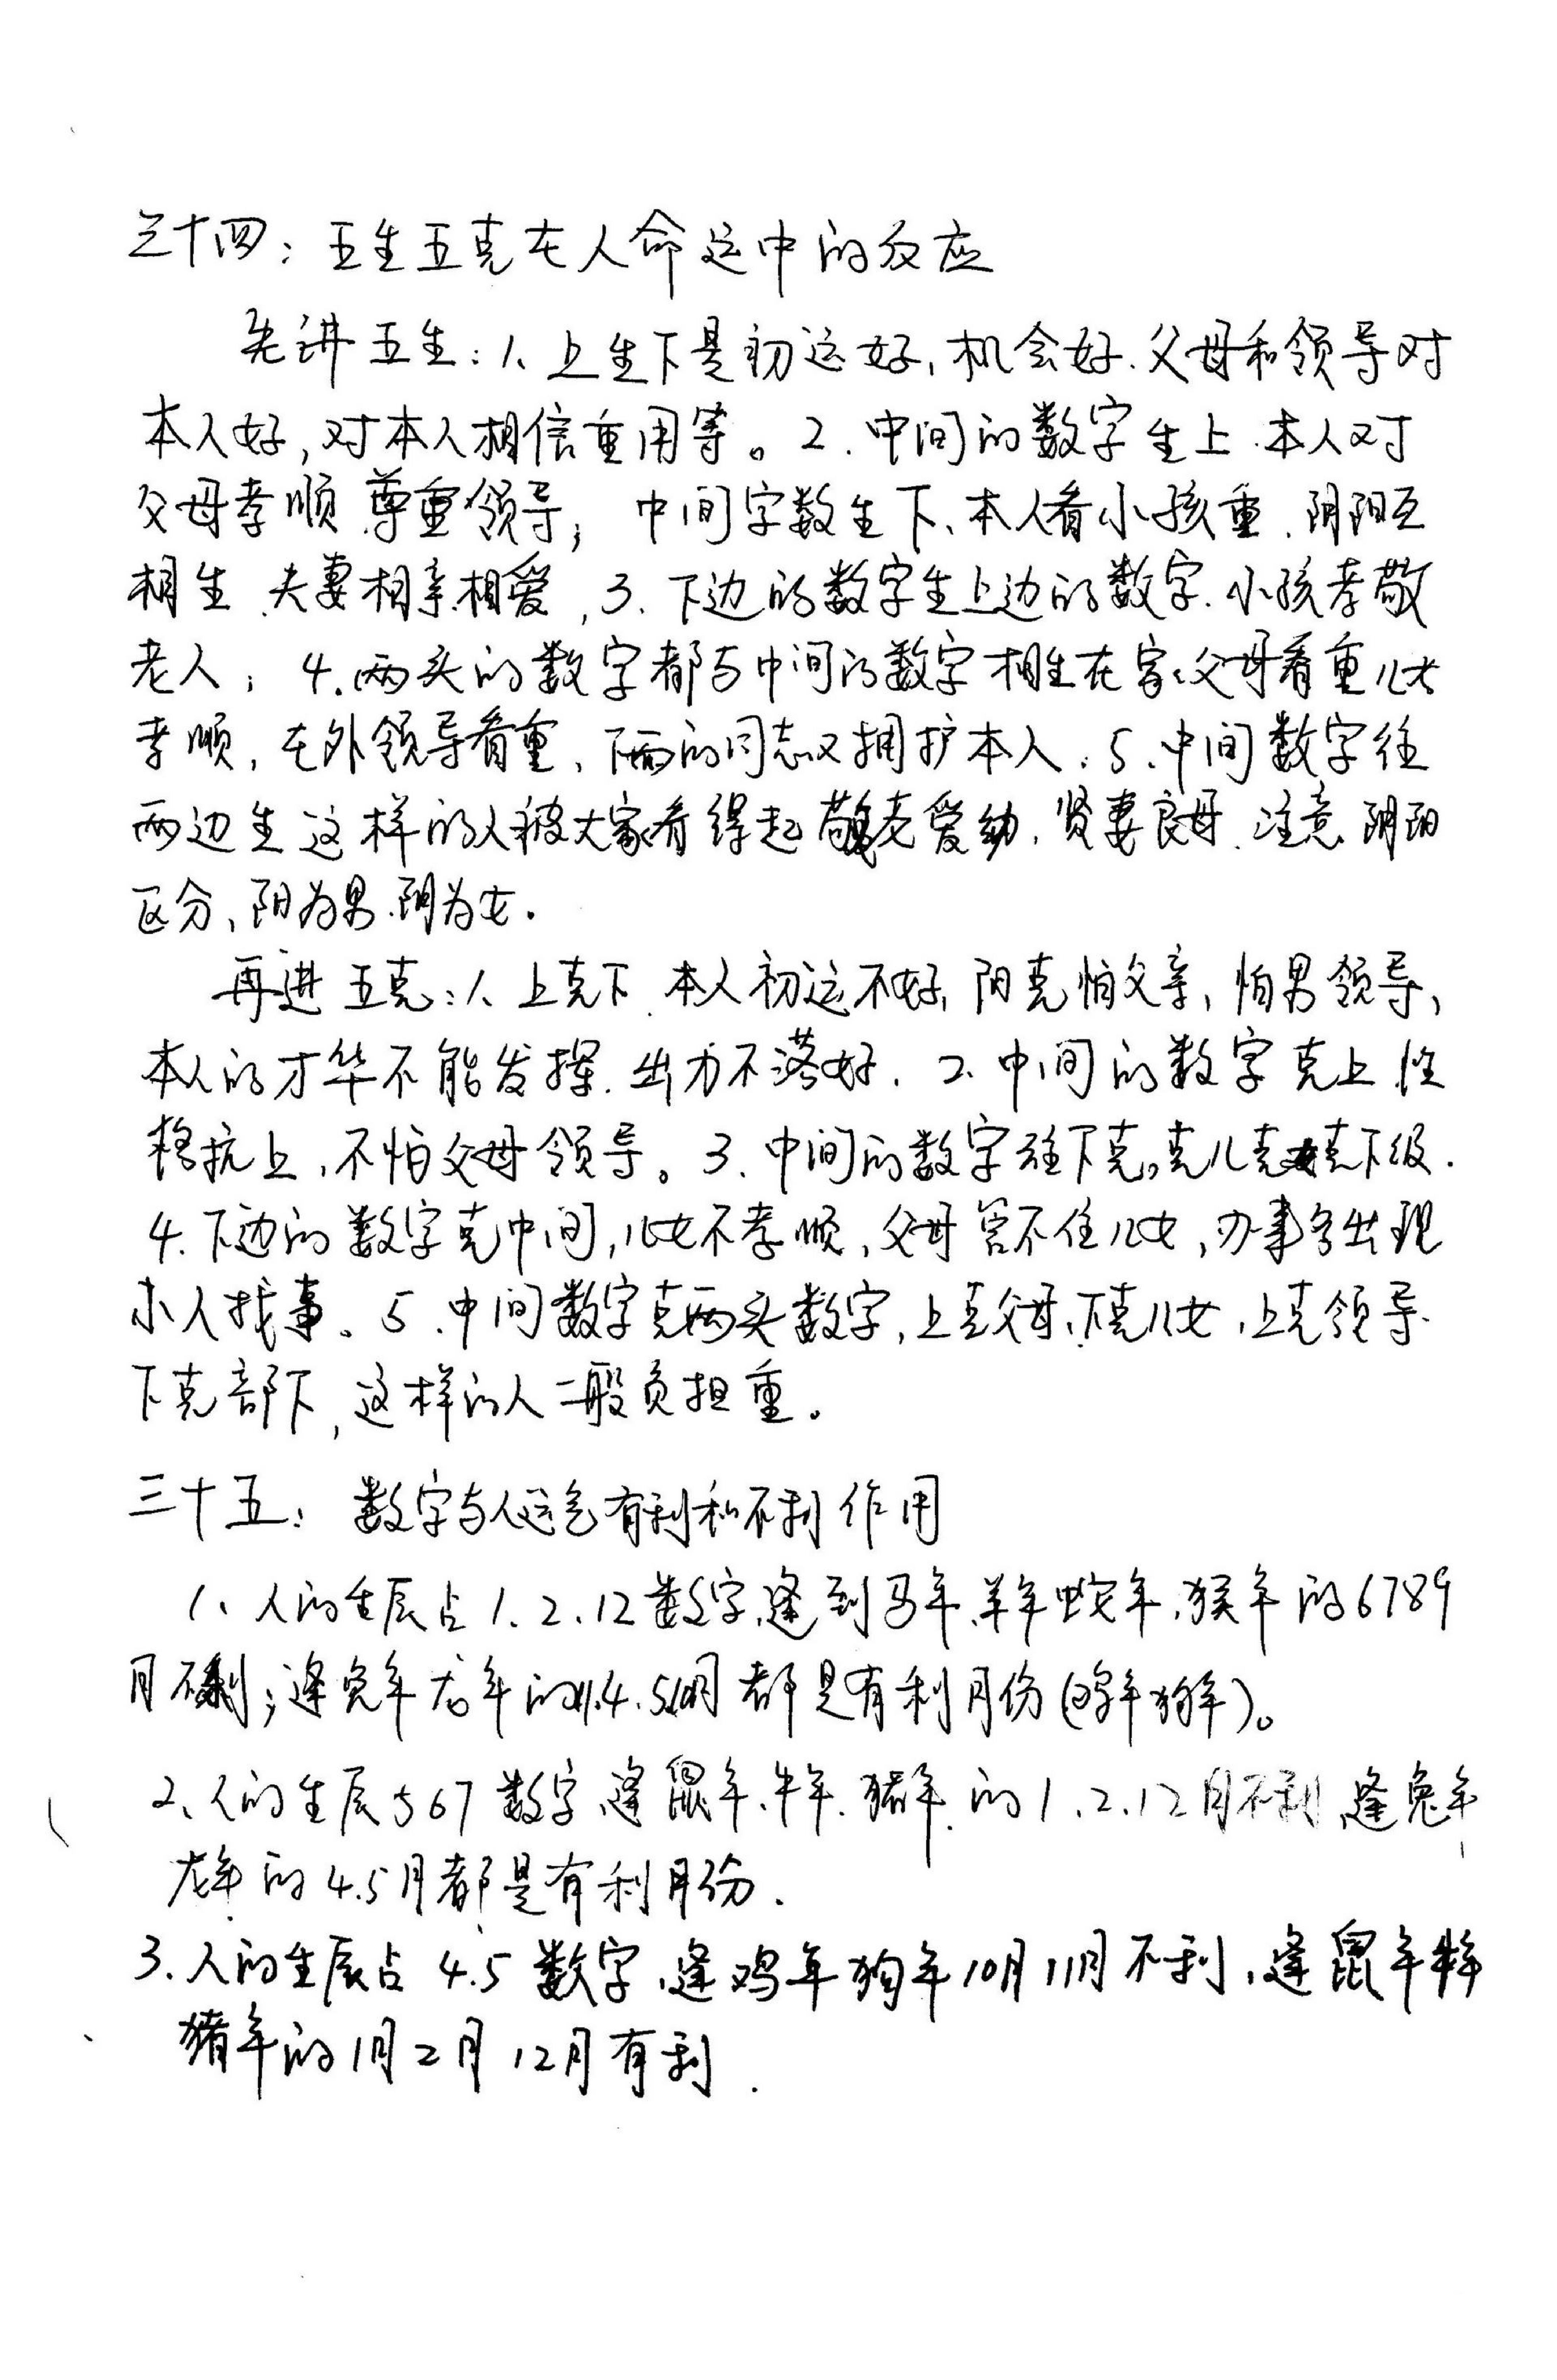 三十四：五生五克在人命运中的反应
先讲五生：1、上生下是初运好，机会好.父母和领导对
本人好，对本人相信重用等。2.中间的数字生上.本人对
父母孝顺.尊重领导；中间字数生下、本人看小孩重.阴阳互
相生.夫妻相亲相爱，3.下边的数字生上边的数字.小孩孝敬
老人；4.两头的数字都与中间的数字相生在家父母看重儿女
孝顺，在外领导看重、下面的同志又拥护本人.5、中间数字往
两边生这样的人被大家看得起敬老爱幼.贤妻良母.注意阴阳
区分、阳为男.阴为女.
再进五克：1、上克下.本人初运不好，阳克怕父亲，怕男领导，
本人的才华不能发挥.出力不落好.2.中间的数字克上.性
格抗上，不怕父母领导。3、中间的数字往下克，克儿克女克下级.
4.下边的数字克中间，儿女不孝顺，父母管不住儿女，办事多出现
小人找事。5、中间数字克两头数字，上克父母、下克儿女，上克领导.
下克部下，这样的人一般负担重。
三十五：数字与人运气有利和不利作用
1、人的生辰占1.2.12数字，逢到马年、羊年蛇年，猴年的6789
月不利；逢兔年龙年的 4.5 月都是有利月份(鸡年狗年)。
2、人的生辰567数字、逢鼠年、牛年.猪年.的1.2.12月不利、逢兔年
龙年的4.5月都是有利月份.
3.人的生辰占4.5数字、逢鸡年狗年10月11月不利，逢鼠年牛年
猪年的1月2月12月有利.